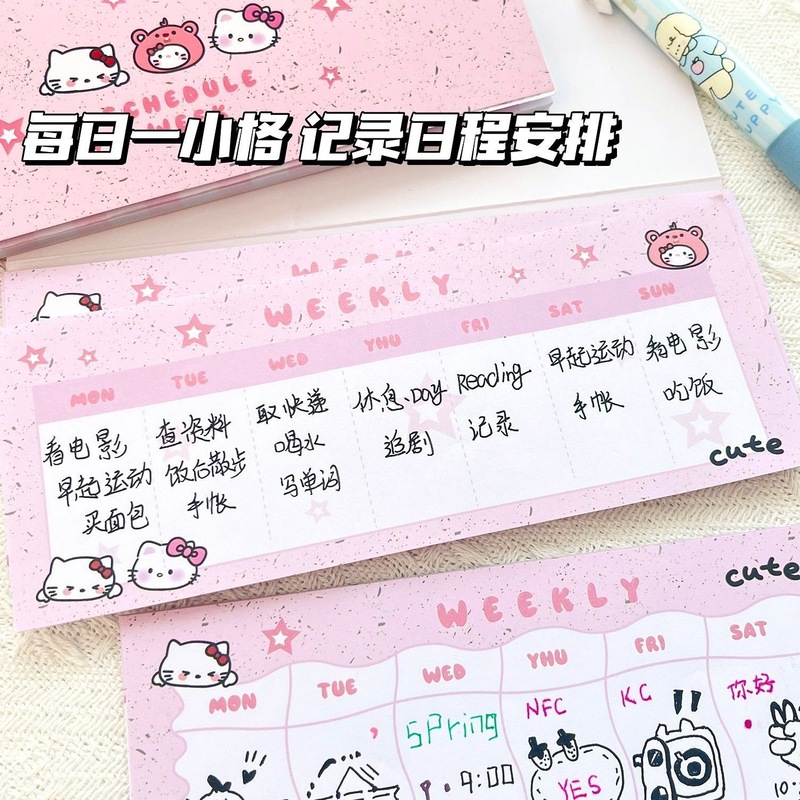 SCHEDULE
WEEK
每日一小格 记录日程安排
CUTE
PUPPY
WEEKLY
WEEKLY
MON TUE WED YHU FRI SAT SUN
看电影
早起运动
买面包
查资料
饭后散步
手帐
取快递
喝水
写单词
休息.Day
追剧
Reading
记录
早起运动
手帐
看电影
吃饭
cute
WEEKLY
cute
MON TUE WED YHU FRI SAT
Spring
9:00
NFC
YES
KC
你好